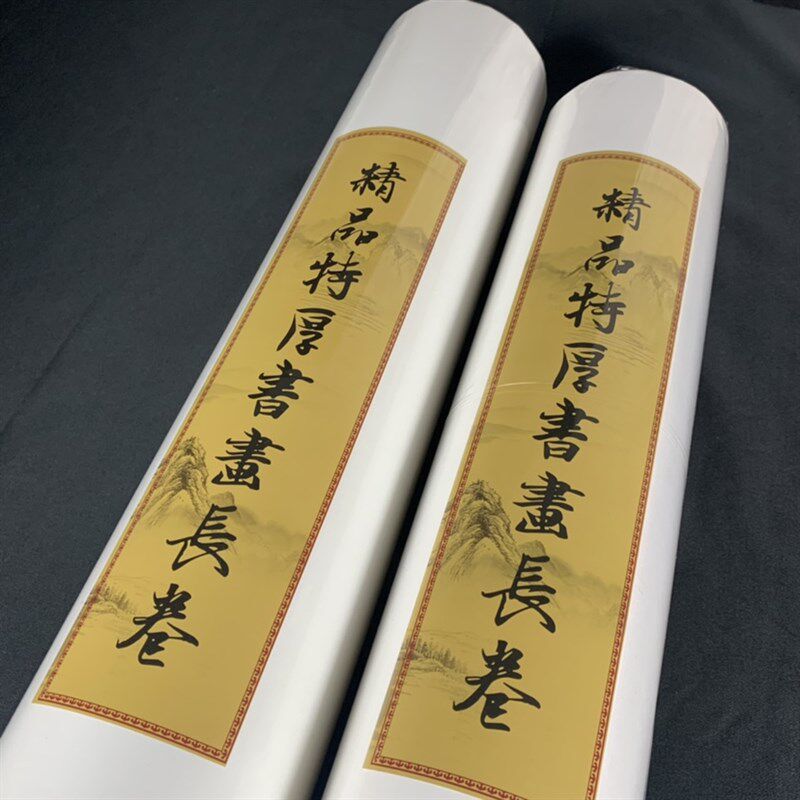 精品特厚書畫長卷
精品特厚書畫長卷